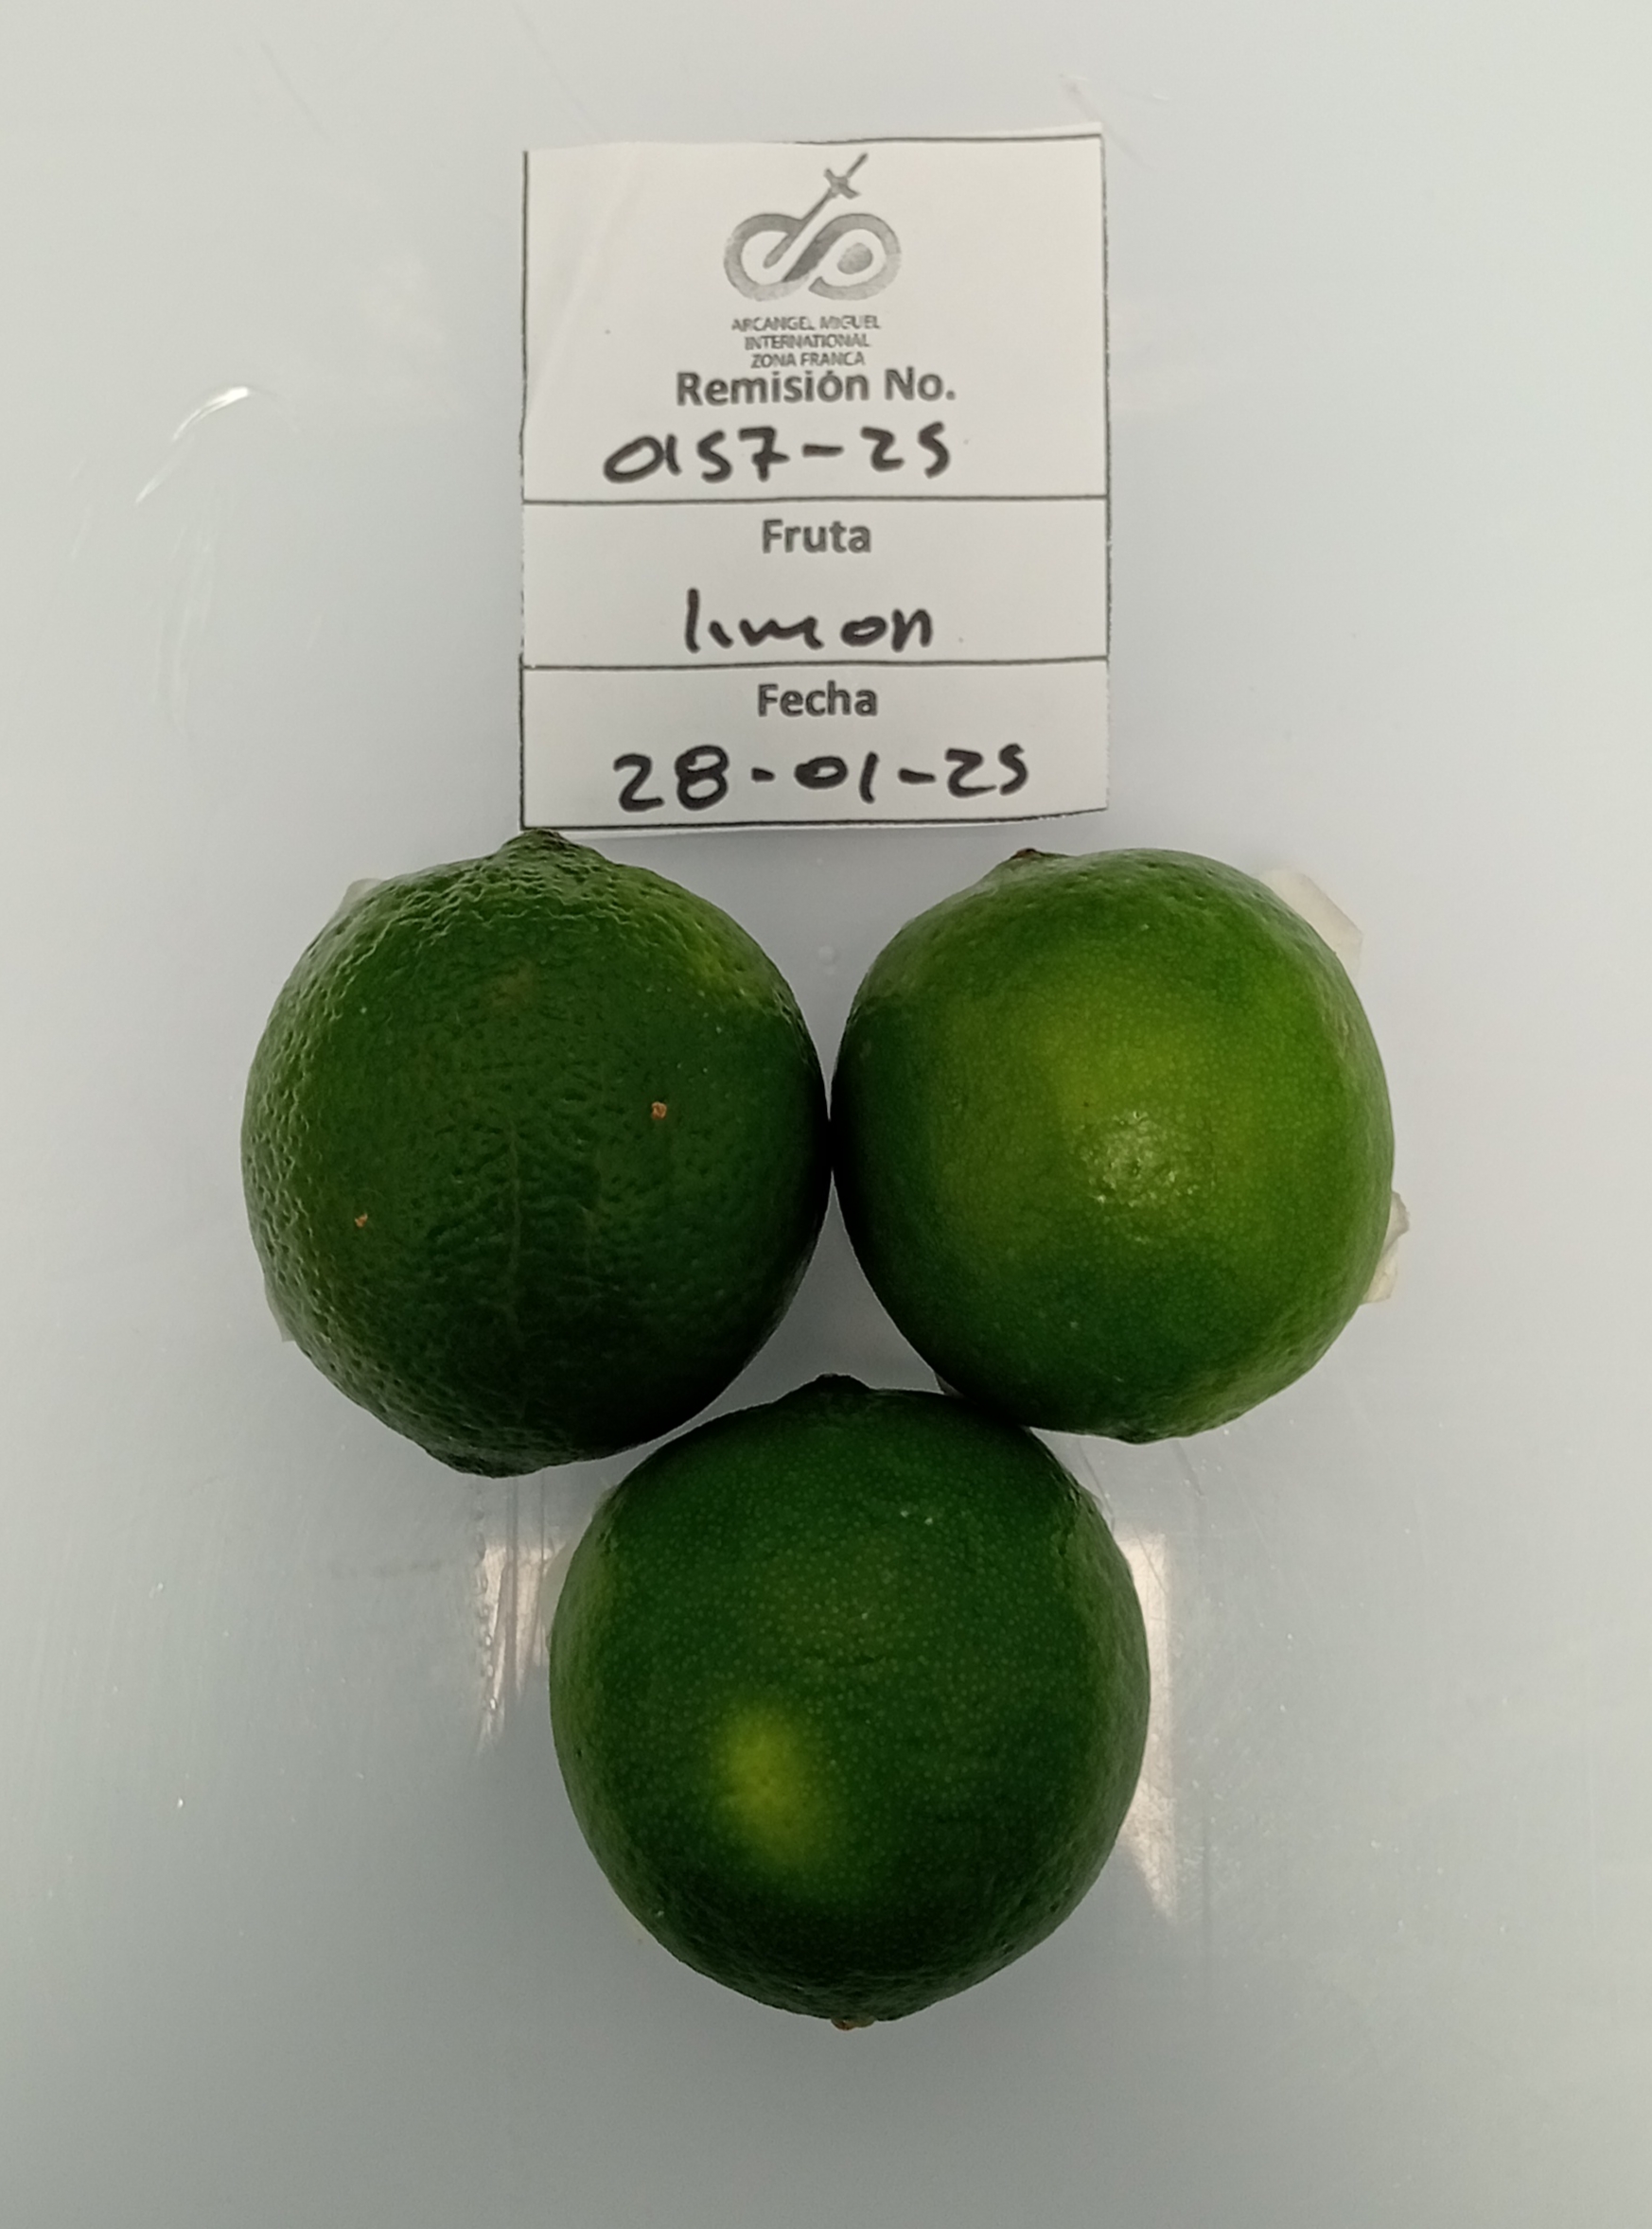 ARCANGEL MIGUEL
INTERNATIONAL
ZONA FRANCA
Remisión No.
0157-25
Fruta
limon
Fecha
28-01-25